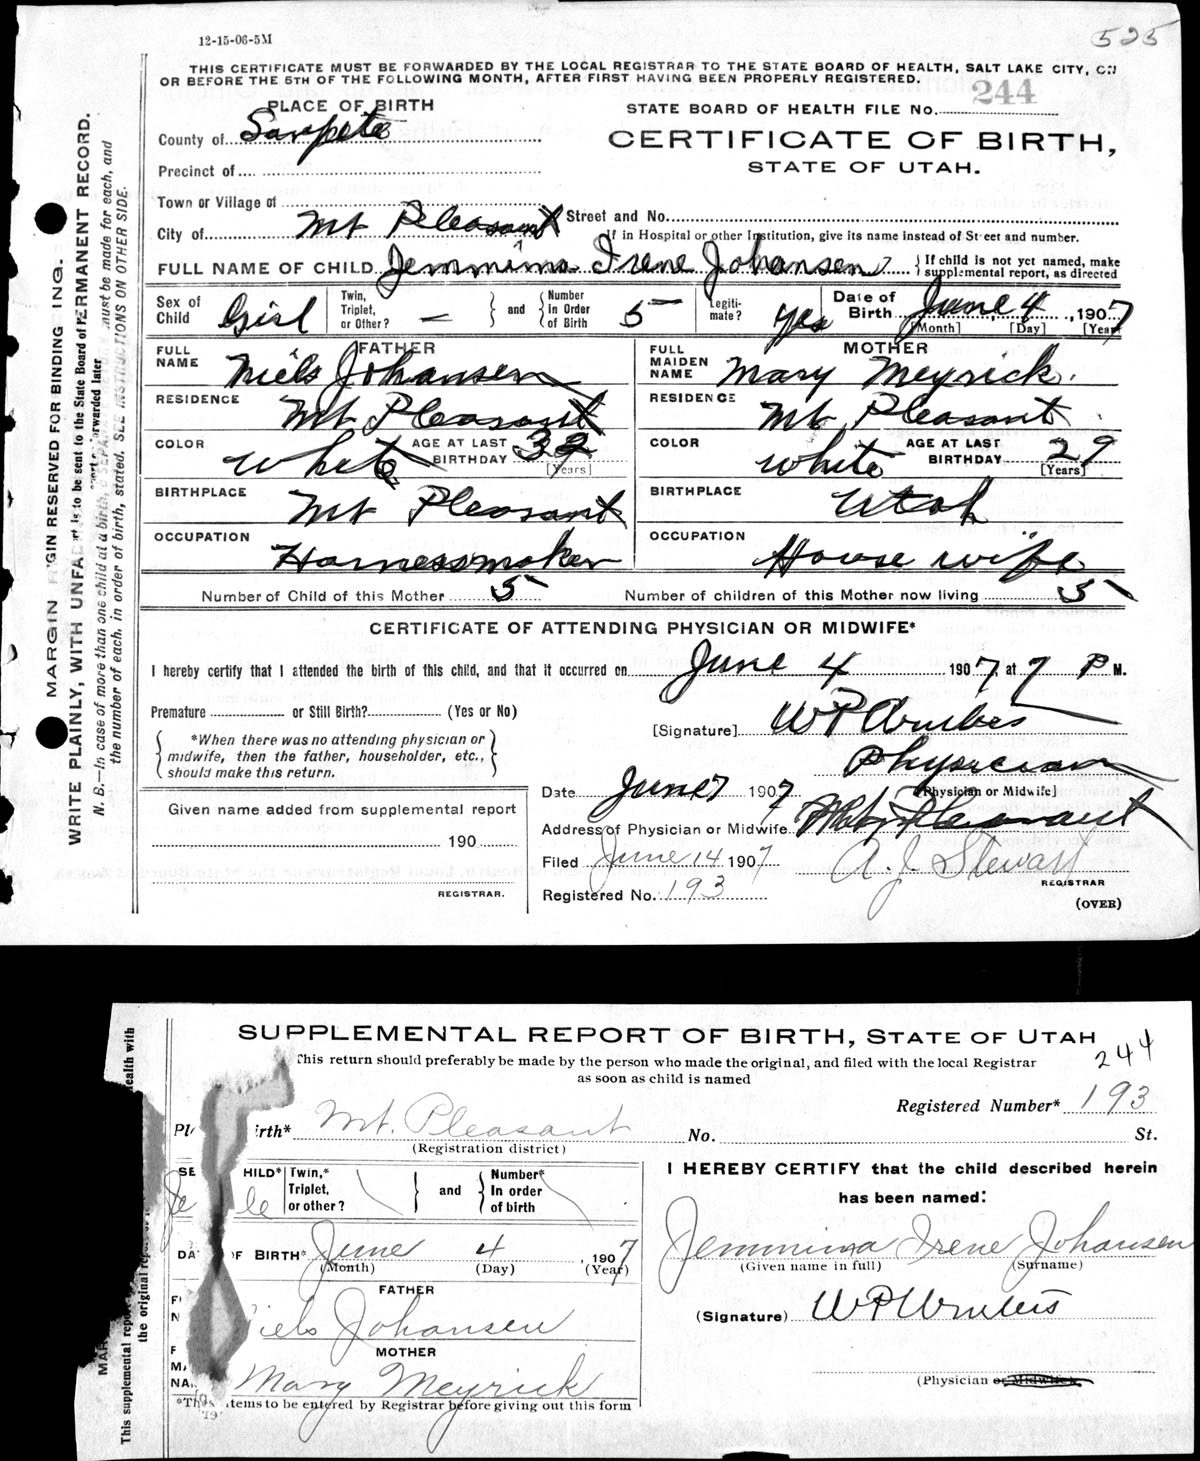 12-15-06-5M
525
THIS CERTIFICATE MUST BE FORWARDED BY THE LOCAL REGISTRAR TO THE STATE BOARD OF HEALTH, SALT LAKE CITY, ON
OR BEFORE THE 5TH OF THE FOLLOWING MONTH, AFTER FIRST HAVING BEEN PROPERLY REGISTERED.
PLACE OF BIRTH
STATE BOARD OF HEALTH FILE No. 244
County of Sanpete
CERTIFICATE OF BIRTH,
STATE OF UTAH.
Precinct of
Town or Village of
City of Mt Pleasant Street and No.
If in Hospital or other Institution, give its name instead of Street and number.
FULL NAME OF CHILD Jemmima Irene Johansen } If child is not yet named, make supplemental report, as directed
Sex of Child Girl Twin, Triplet, or Other? — } and { Number In Order of Birth 5 Legiti- mate? Yes Date of Birth June 4, 1907
[Month] [Day] [Year]
FATHER
MOTHER
FULL NAME Niels Johansen
FULL MAIDEN NAME Mary Meyrick.
RESIDENCE Mt Pleasant
RESIDENCE Mt Pleasant
COLOR White AGE AT LAST BIRTHDAY [Years]
COLOR White AGE AT LAST BIRTHDAY 29 [Years]
BIRTHPLACE Mt Pleasant
BIRTHPLACE Utah
OCCUPATION Harnessmaker
OCCUPATION House wife
Number of Child of this Mother 5 Number of children of this Mother now living 5
CERTIFICATE OF ATTENDING PHYSICIAN OR MIDWIFE*
I hereby certify that I attended the birth of this child, and that it occurred on June 4 1907, at 7 P M.
Premature or Still Birth? (Yes or No)
[Signature]
*When there was no attending physician or
midwife, then the father, householder, etc.,
should make this return.
Physician
[Physician or Midwife]
Date June 7 1907
Address of Physician or Midwife Mt Pleasant
Given name added from supplemental report
190
REGISTRAR.
Filed June 14 1907 A. J. Stewart
REGISTRAR
Registered No. 193
(OVER)
MARGIN RESERVED FOR BINDING
WRITE PLAINLY, WITH
PERMANENT RECORD.
is to be sent to the State Board of
N. B.—In case of more than one child at a birth,
must be made for each, and
the number of each, in order of birth, stated. SEE INSTRUCTIONS ON OTHER SIDE.
SUPPLEMENTAL REPORT OF BIRTH, STATE OF UTAH
244
This return should preferably be made by the person who made the original, and filed with the local Registrar
as soon as child is named
Registered Number* 193
Mt. Pleasant No. St.
(Registration district)
I HEREBY CERTIFY that the child described herein
has been named:
HILD* Twin,* Triplet, or other? } and { Number* In order of birth
Jemmima Irene Johansen
(Given name in full) (Surname)
OF BIRTH* June 4, 1907
(Month) (Day) (Year)
FATHER
iels Johansen
(Signature)
MOTHER
Mary Meyrick
(Physician or Midwife)
tems to be entered by Registrar before giving out this form
This supplemental report
the original report
ealth with